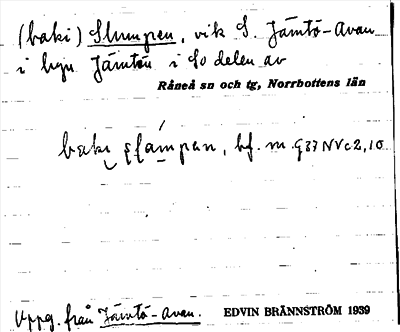 (baki) Slumpen, vik S. Jämtö-Avan
i byn Jämtön i So delen av
Råneå sn och tg, Norrbottens län
baki slampen, bf. m. 933 NV c 2, 10
Uppg. från Jämtö-Avan. EDVIN BRÄNNSTRÖM 1939